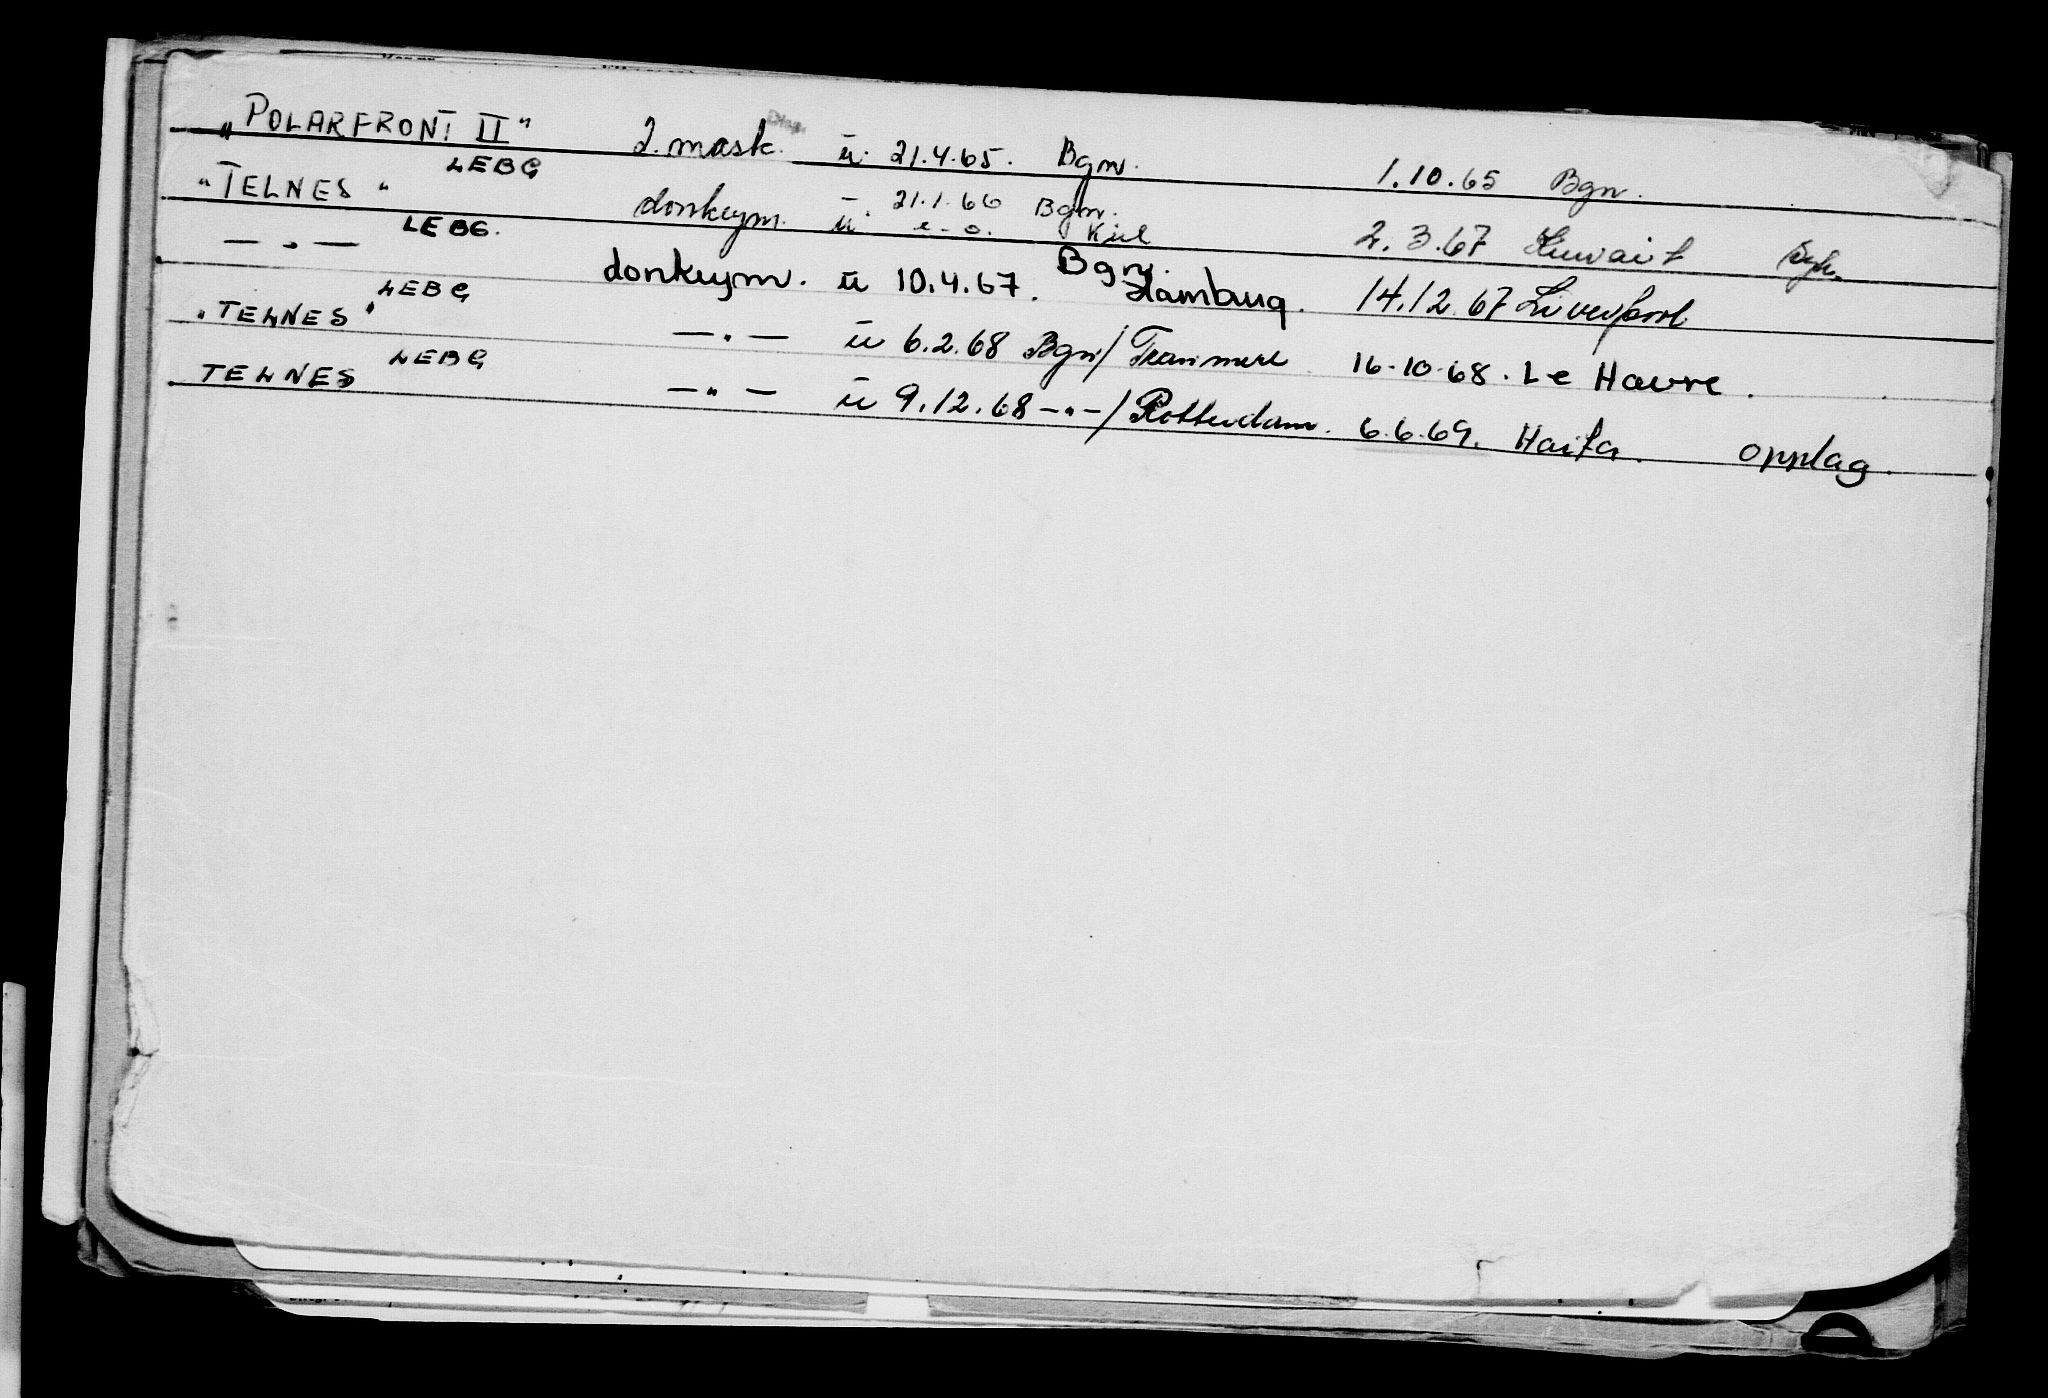 „POLARFRONT II" 2. mask. ü. 21.4.65. Bgn. 1.10.65 Bgn.
LEBG
"TELNES" donkeym. ü. 21.1.66 Bgn. 2.3.67 Kuwait
e.o. Kiel
LEBG.
— „ — donkeym. ü 10.4.67. Bgn. Hamburg. 14.12.67 Liverpool
LEBG
"TELNES" — „ — ü 6.2.68 Bgn/Tranmere 16.10.68. Le Havre.
LEBG
TELNES — „ — ü 9.12.68 — „ —/Rotterdam. 6.6.69. Haifa. opplag.